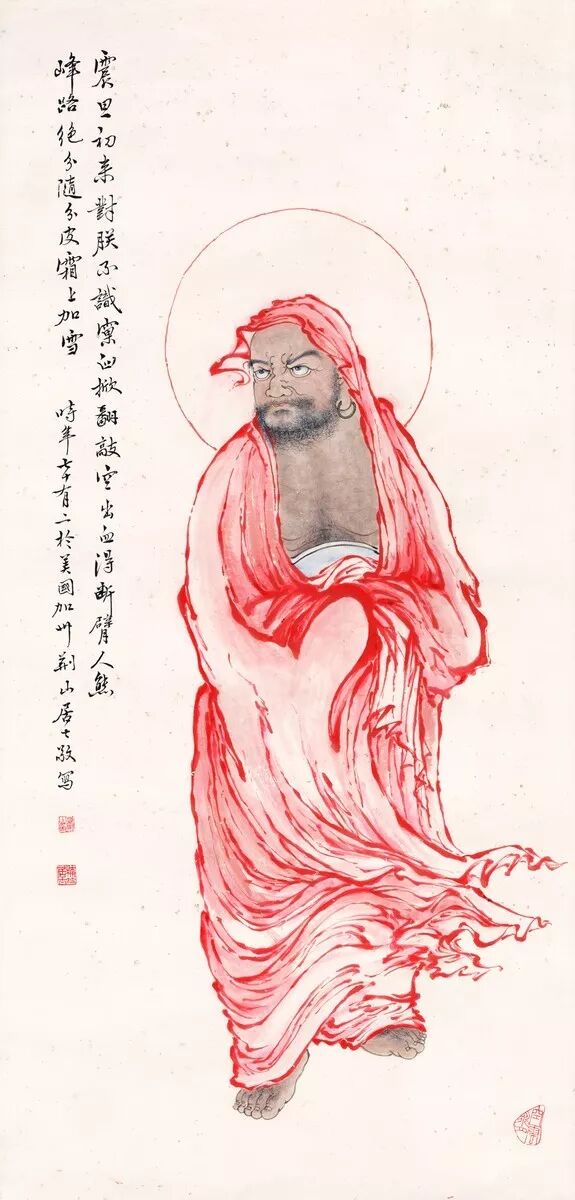 震旦初来對朕不識窠臼掀翻敲空出血得斷臂人熊
峰路絶分隨分皮霜上加雪
時年七十有二於美國加州荊山居士敬寫